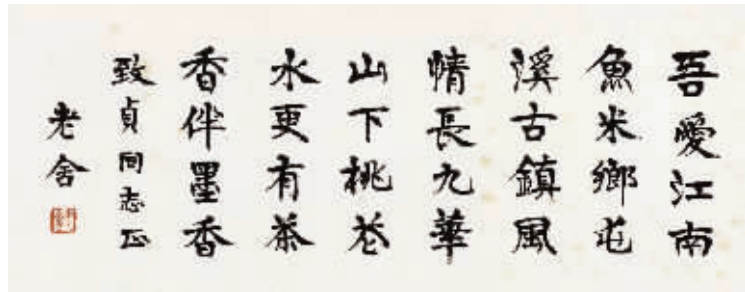 吾愛江南
魚米鄉屯
溪古鎮風
情長九華
山下桃花
水更有茶
香伴墨香
致貞同志正
老舍